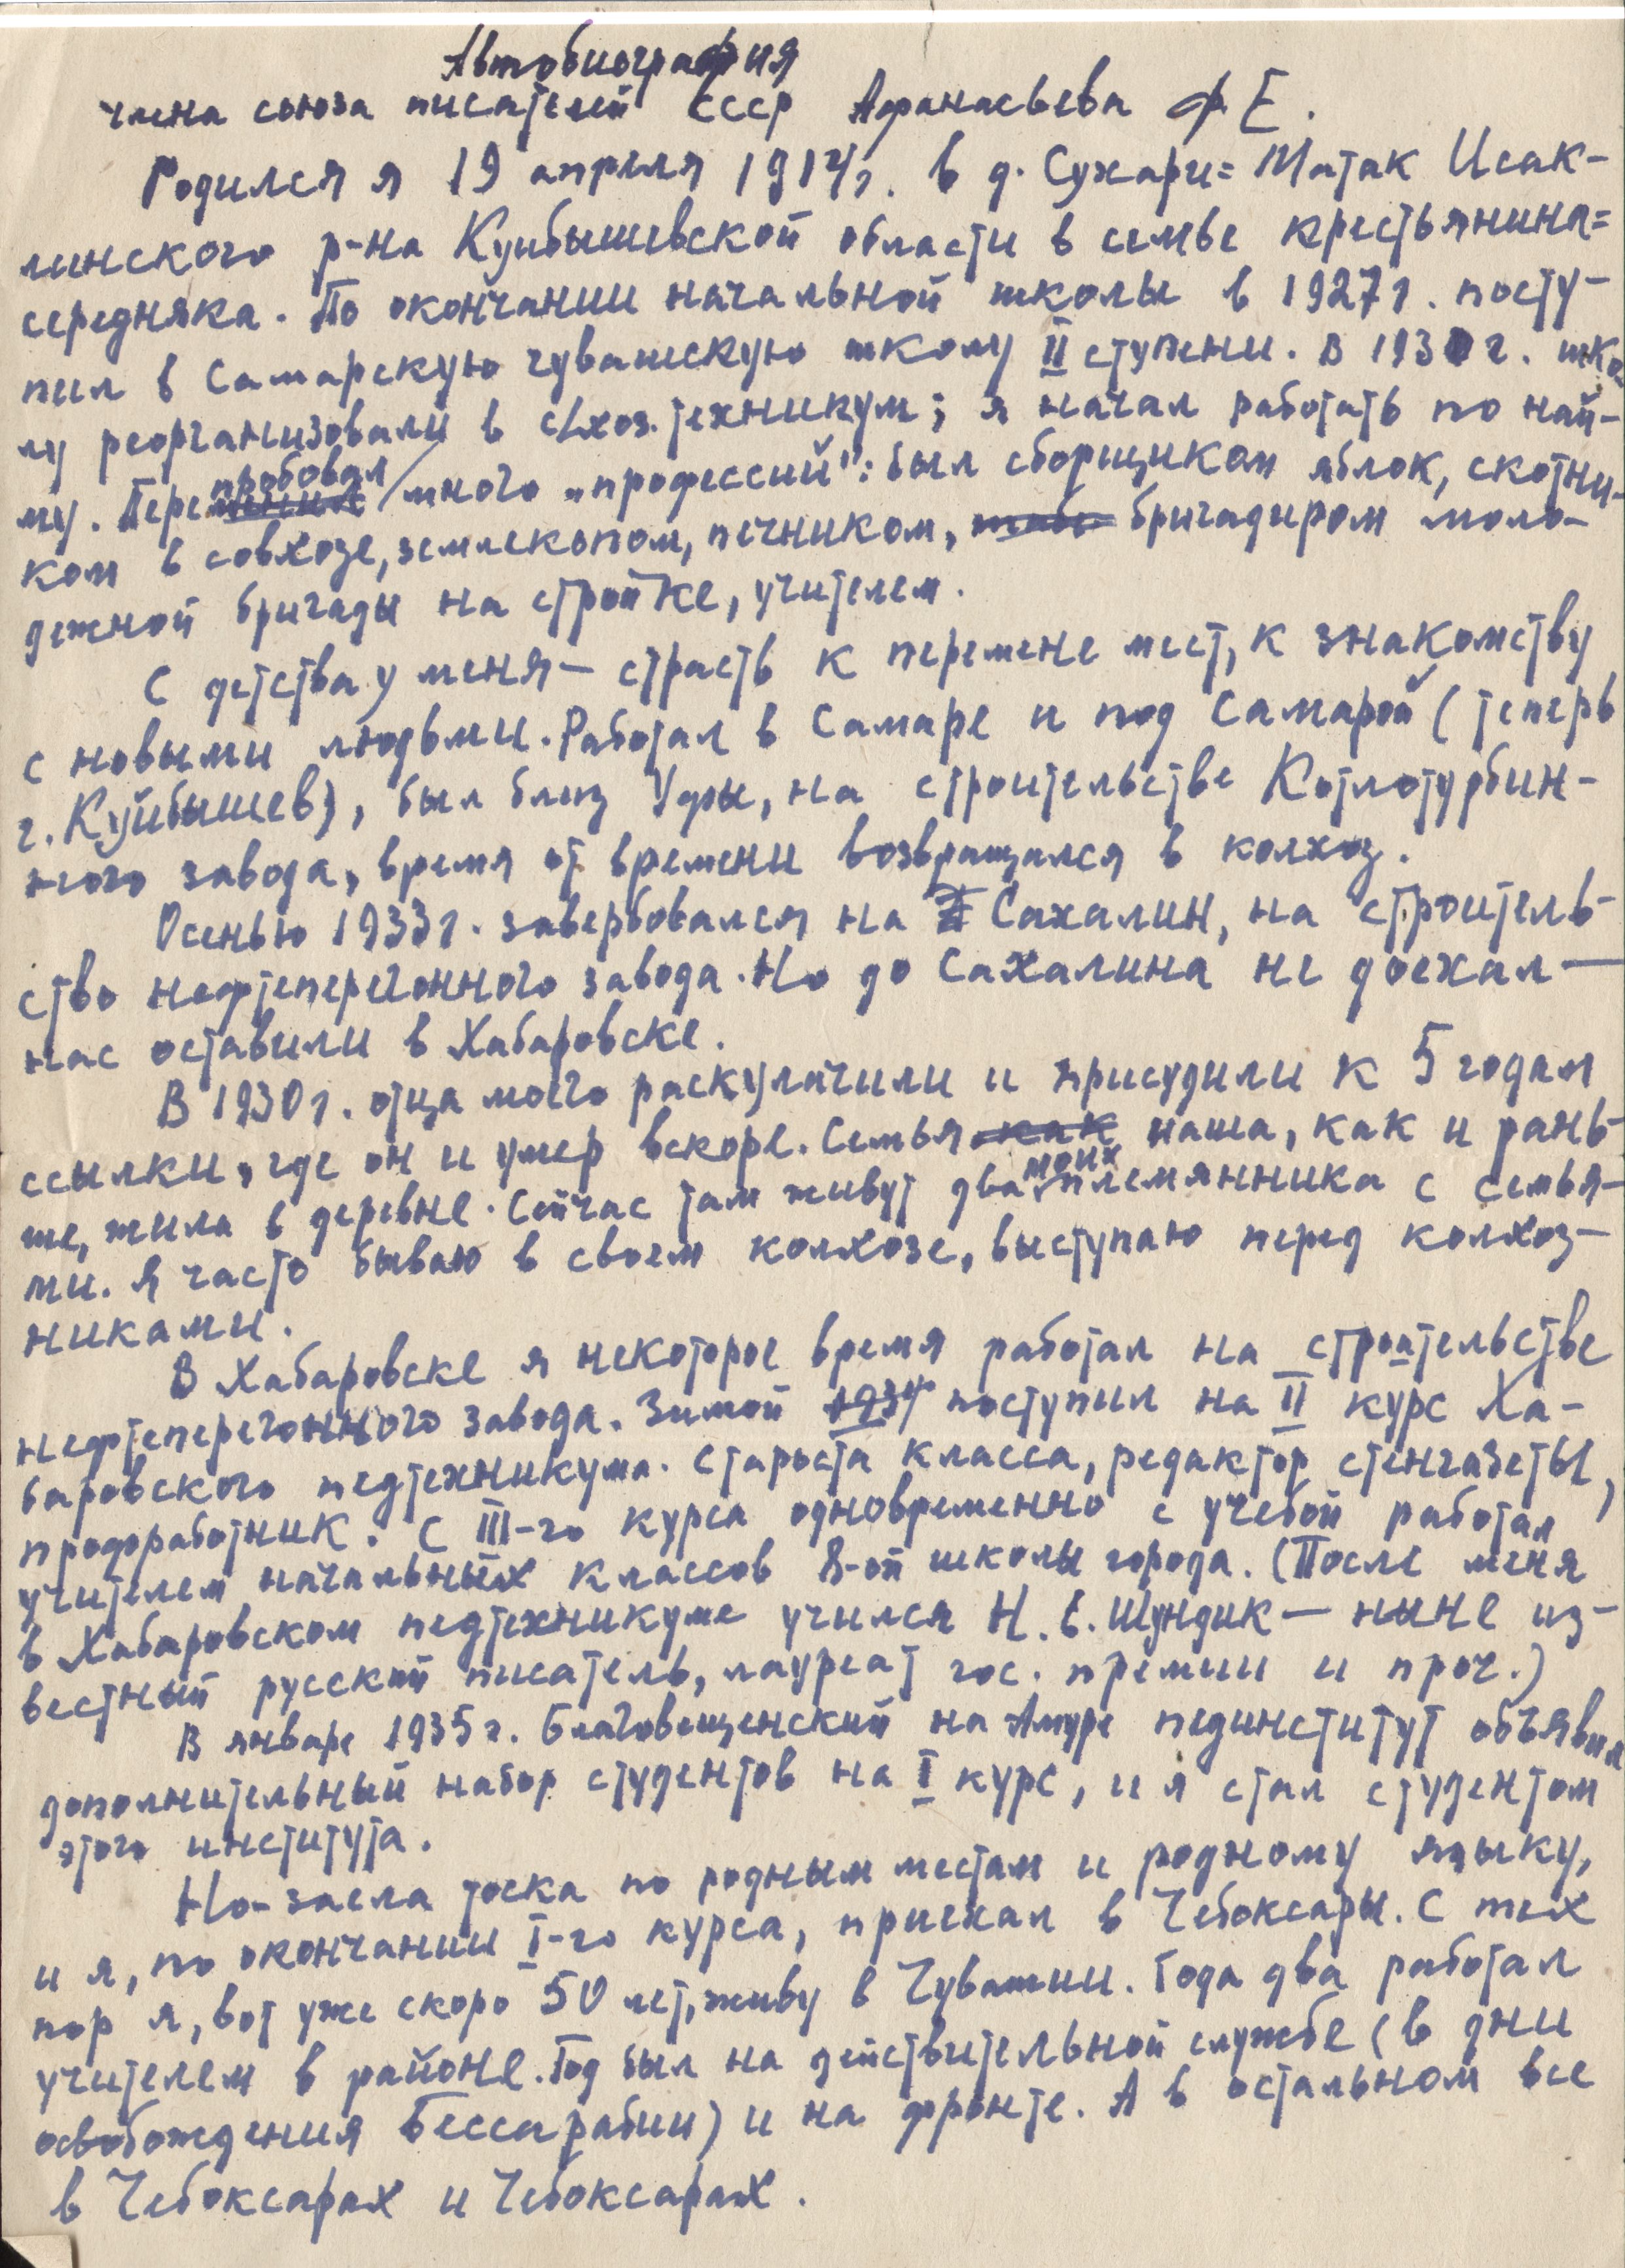 Автобиография
члена союза писателей СССР Афанасьева Ф Е.
Родился я 19 апреля 1914 г. в д. Сухари=Матак Исак-
линского р-на Куйбышевской области в семье крестьянина=
середняка. По окончании начальной школы в 1927 г. посту-
пил в Самарскую чувашскую школу II ступени. В 1930 г. шко-
лу реорганизовали в с/хоз. техникум; я начал работать по най-
му. Перепробовал много „профессий": был сборщиком яблок, скотни-
ком в совхозе, землекопом, печником, бригадиром моло-
дежной бригады на стройке, учителем.
С детства у меня — страсть к перемене мест, к знакомству
с новыми людьми. Работал в Самаре и под Самарой (теперь
г. Куйбышев), был близ Уфы, на строительстве Котлотурбин-
ного завода, время от времени возвращался в колхоз.
Осенью 1933 г. завербовался на Сахалин, на строитель-
ство нефтеперегонного завода. Но до Сахалина не доехал —
нас оставили в Хабаровске.
В 1930 г. отца моего раскулачили и присудили к 5 годам
ссылки, где он и умер вскоре. Семья как наша, как и рань-
ше, жила в деревне. Сейчас там живут два моих племянника с семья-
ми. Я часто бываю в своем колхозе, выступаю перед колхоз-
никами.
В Хабаровске я некоторое время работал на строительстве
нефтеперегонного завода. Зимой 1934 поступил на II курс Ха-
баровского педтехникума. Староста класса, редактор стенгазеты,
профработник. С III-го курса одновременно с учебой работал
учителем начальных классов 8-ой школы города. (После меня
в Хабаровском педтехникуме учился Н. Е. Шундик — ныне из-
вестный русский писатель, лауреат гос. премии и проч.)
В январе 1935 г. Благовещенский на Амуре пединститут объявил
дополнительный набор студентов на I курс, и я стал студентом
этого института.
Но - заела тоска по родным местам и родному языку,
и я, по окончании I-го курса, приехал в Чебоксары. С тех
пор я, вот уже скоро 50 лет, живу в Чувашии. Года два работал
учителем в районе. Год был на действительной службе (в дни
освобождения Бессарабии) и на фронте. А в остальном все
в Чебоксарах и Чебоксарах.